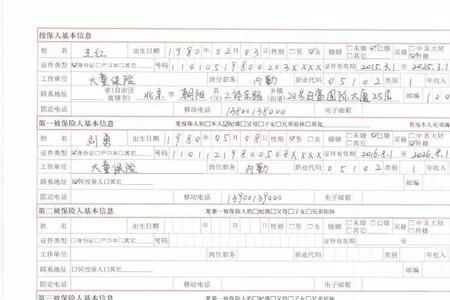 投保人基本信息
姓名 王红 出生日期 1980年02月03日 性别 □男☑女 婚姻 □未婚☑已婚□其它 国籍 ☑中国大陆□外籍
证件类型 ☑身份证□户口本□其它 号码 11010519800203XXXX 证件有效期 2015.3.1 至 2025.3.1
工作单位 大童保险 岗位职务 内勤 职业代码 05102 1 年收入
联系地址 省(自治区直辖市) 北京 市 朝阳 县区 工体东路 乡镇街道 20号百富国际大厦25层 邮编 100
固定电话 移动电话 13800138000
第一被保险人基本信息 是投保人的□本人☑配偶□父母□子女□兄弟姐妹□其他 若为本人无须填
姓名 刘勇 出生日期 1980年05月08日 性别 ☑男□女 婚姻 □未婚☑已婚□其它 国籍 ☑中国大陆□外籍
证件类型 ☑身份证□户口本□其它 号码 11011219800508XXXX 证件有效期 2016.8.1 至 2026.8.1
工作单位 大童保险 岗位职务 内勤 职业代码 05102 1 年收入
联系地址 ☑同投保人□其它 邮编
固定电话 移动电话 13900139000 电子邮箱
第二被保险人基本信息 是第一被保险人的□配偶□父母□子女□兄弟姐妹
姓名 出生日期 年 月 日 性别 □男□女 婚姻 □未婚□已婚□其它 国籍 □中国大陆□外籍
证件类型 □身份证□户口本□其它 号码 证件有效期 至
工作单位 岗位职务 职业代码 年收入
联系地址 □同投保人□其它 邮编
固定电话 移动电话 电子邮箱
第三被保险人基本信息 是第一被保险人的□配偶□父母□子女□兄弟姐妹